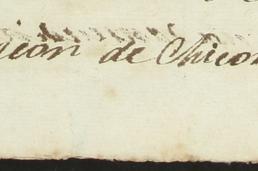 ción de Chicon